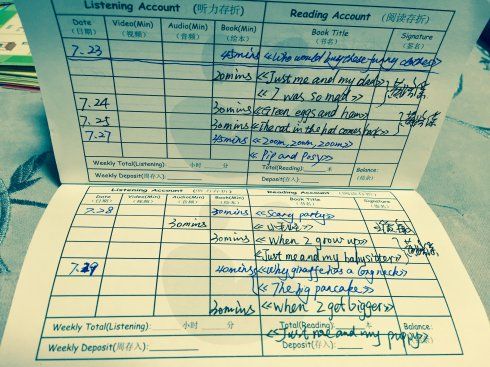 Listening Account (听力存折) Reading Account (阅读存折)
Date Video(Min) Audio(Min) Book(Min) Book Title Signature
(日期) (视频) (音频) (绘本) (书名) (签名)
7.23 45mins «Who would buy these funny clothes»
20mins «Just me and my dad»
«I was so mad»
7.24 30mins «Green eggs and ham»
7.25 30mins «The cat in the hat comes back»
7.27 45mins «Zoom, zoom, zoom»
«Pip and Posy»
Weekly Total(Listening): 小时 分 Total(Reading): 本 Balance:
Weekly Deposit(周存入): Deposit(存入): (结余)
Listening Account (听力存折) Reading Account (阅读存折)
Date Video(Min) Audio(Min) Book(Min) Book Title Signature
(日期) (视频) (音频) (绘本) (书名) (签名)
7.28 30mins «Scary party»
30mins
30mins «When I grow up»
«Just me and my babysitter»
7.29 40mins «Why giraffe has a long neck»
«The big pancake»
30mins «when I got bigger»
Weekly Total(Listening): 小时 分 Total(Reading): 本 Balance:
«Just me and my puppy»
Weekly Deposit(周存入): Deposit(存入): (结余)